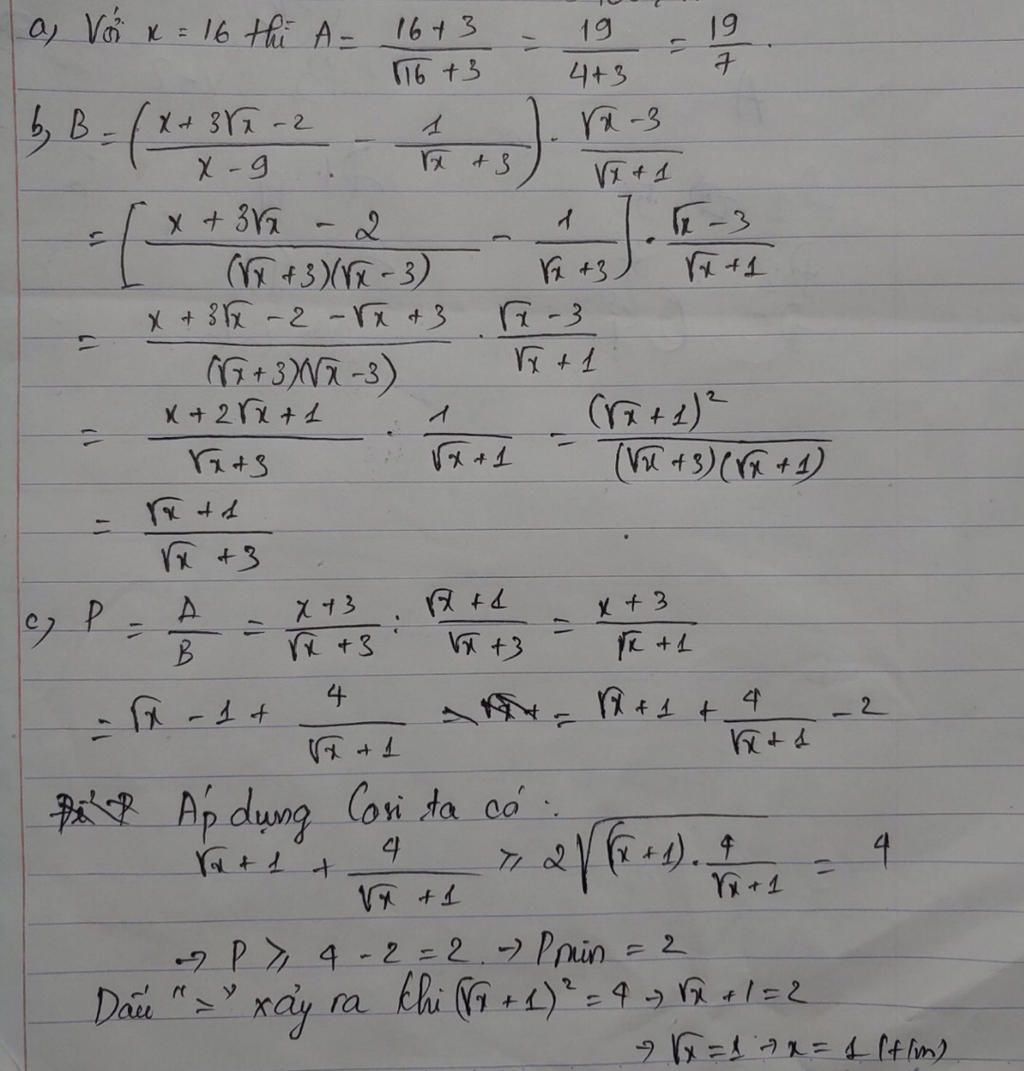 a, Với x = 16 thì A = (16 + 3)/(√16 + 3) = 19/(4+3) = 19/7.
b, B = ((x + 3√x - 2)/(x - 9) - 1/(√x + 3)) . (√x - 3)/(√x + 1)
= [(x + 3√x - 2)/((√x + 3)(√x - 3)) - 1/(√x + 3)] . (√x - 3)/(√x + 1)
= (x + 3√x - 2 - √x + 3)/((√x + 3)(√x - 3)) . (√x - 3)/(√x + 1)
= (x + 2√x + 1)/(√x + 3) . 1/(√x + 1) = (√x + 1)²/((√x + 3)(√x + 1))
= (√x + 1)/(√x + 3)
c, P = A/B = (x + 3)/(√x + 3) : (√x + 1)/(√x + 3) = (x + 3)/(√x + 1)
= √x - 1 + 4/(√x + 1) = √x + 1 + 4/(√x + 1) - 2
Áp dụng Cosi ta có:
√x + 1 + 4/(√x + 1) ≥ 2√((√x + 1) . 4/(√x + 1)) = 4
→ P ≥ 4 - 2 = 2 → Pmin = 2
Dấu "=" xảy ra khi (√x + 1)² = 4 → √x + 1 = 2
→ √x = 1 → x = 1 (t/m)